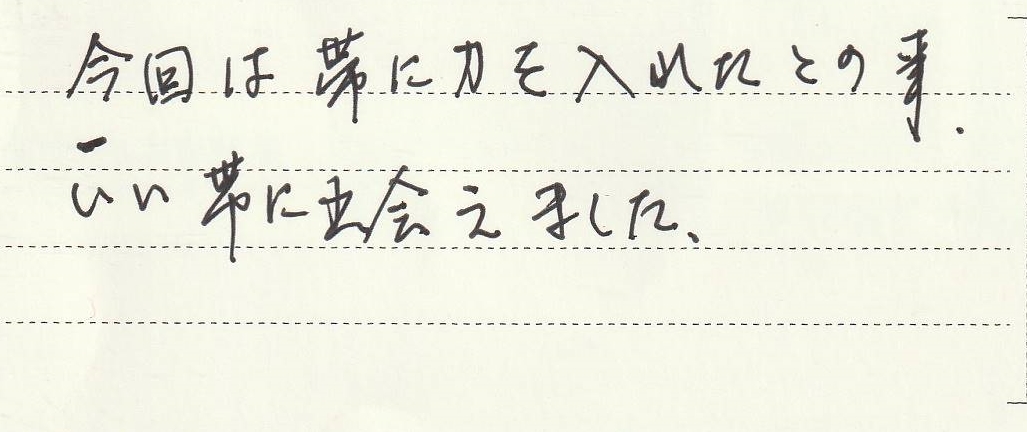 今回は帯に力を入れたとの事.
いい帯に出会えました、